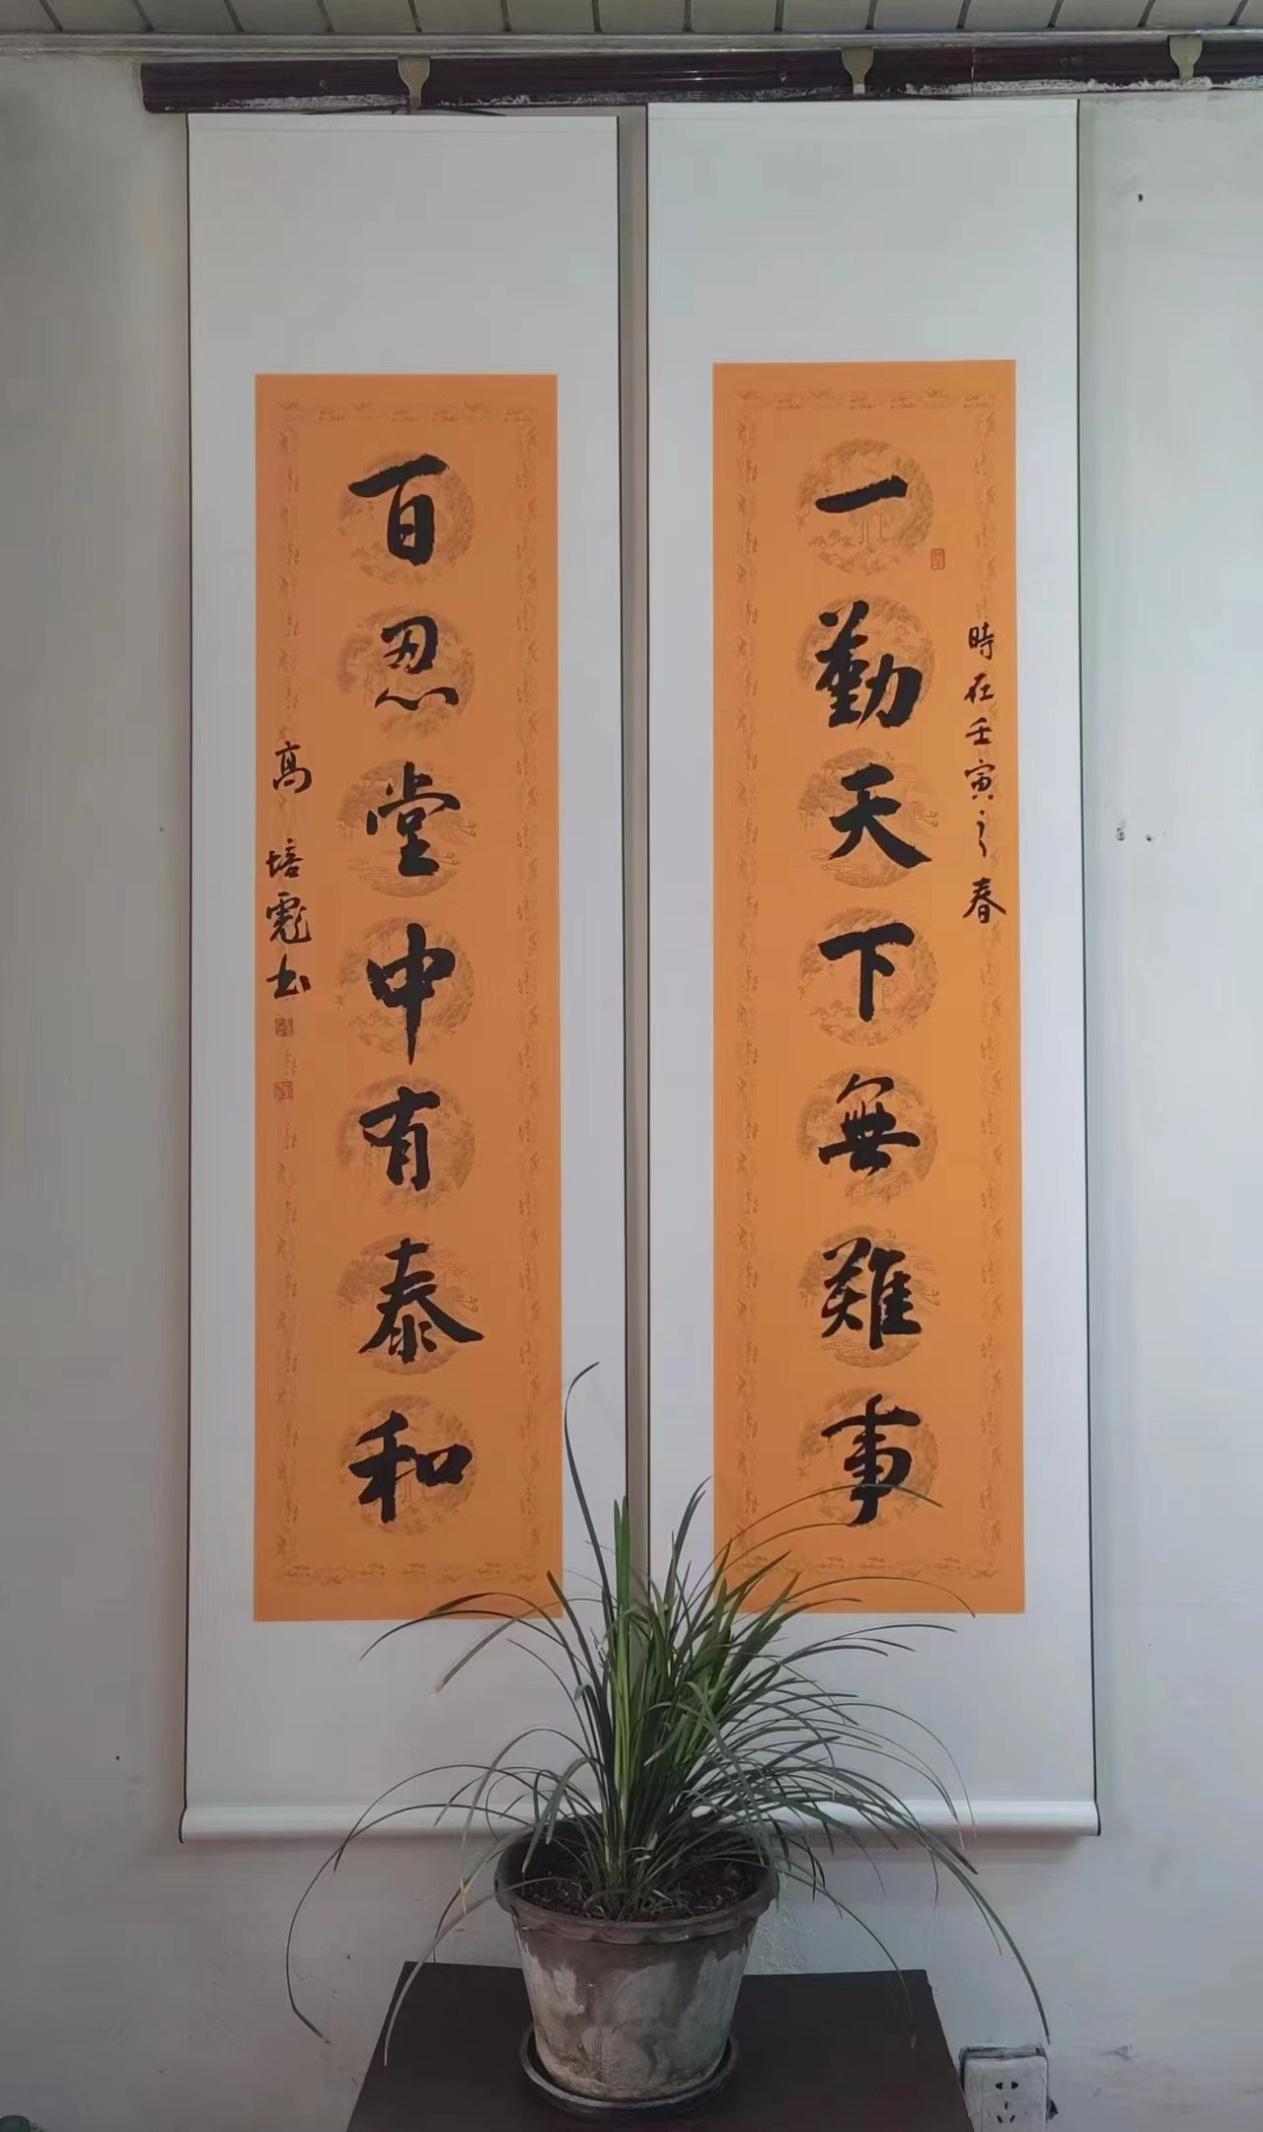 時在壬寅之春
一勤天下無難事
百忍堂中有泰和
高培彪书